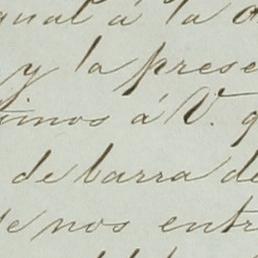 gual á la
y la prese
imos á V. q
de barra de
de nos entr